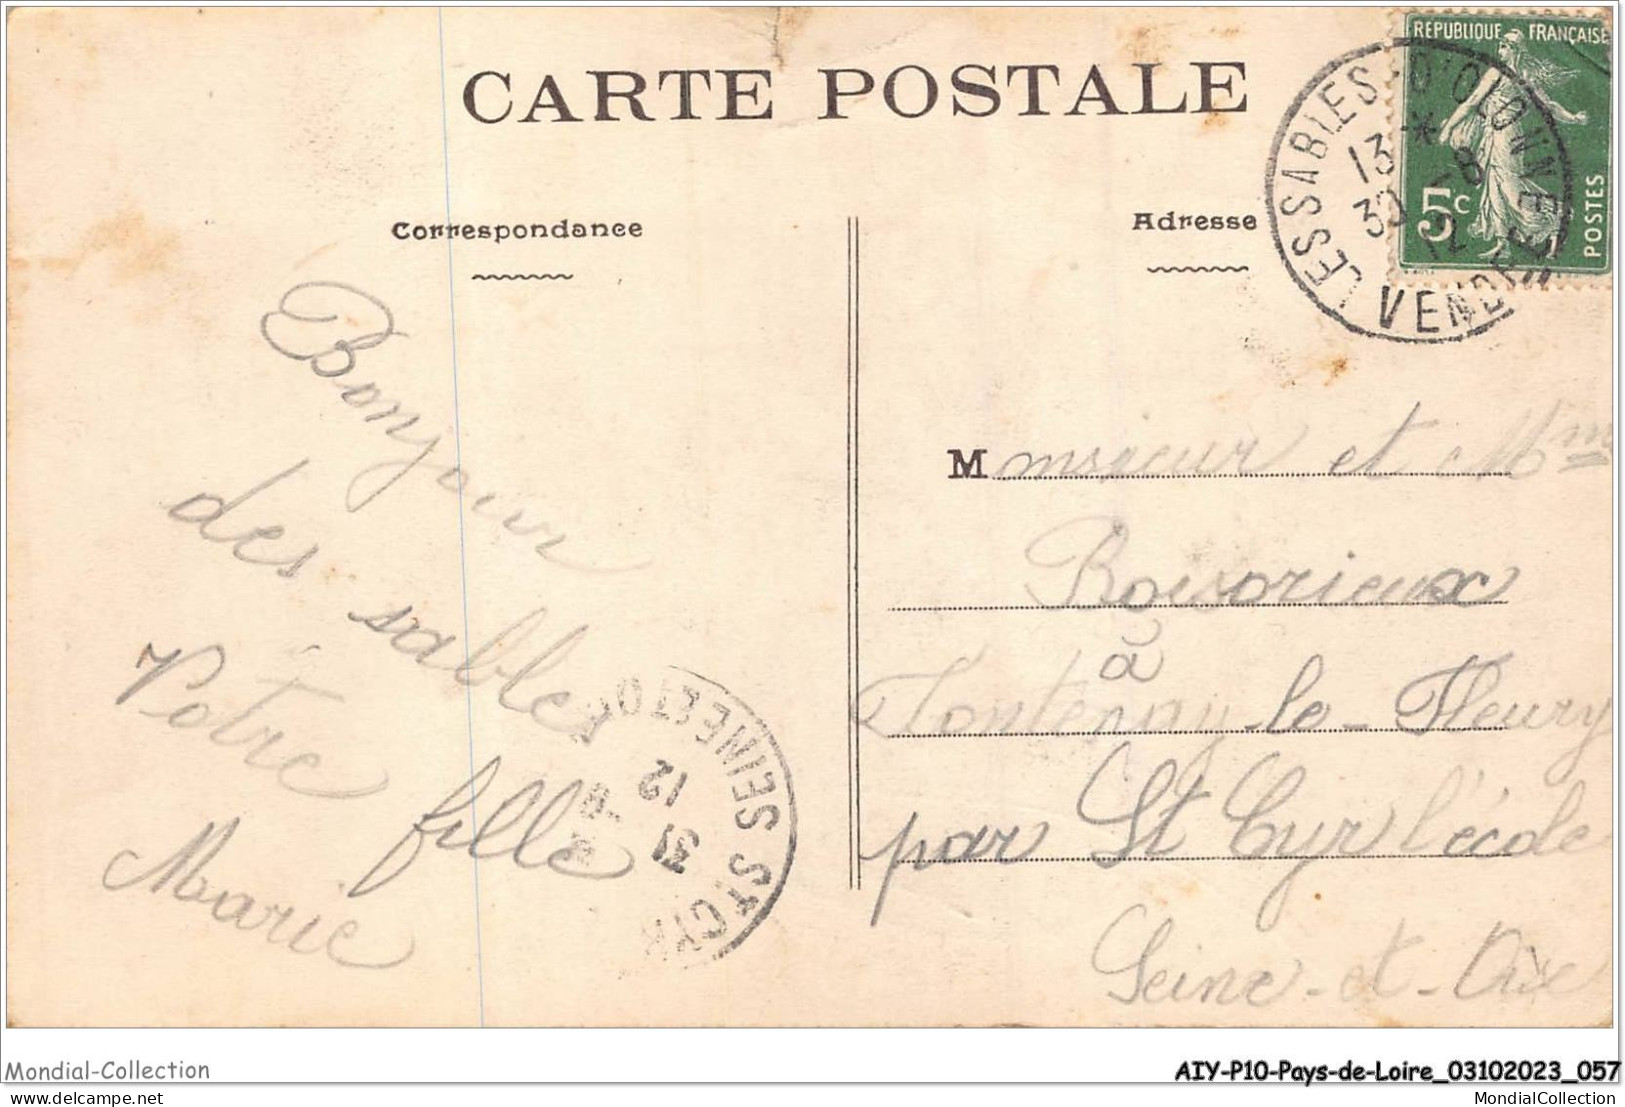 CARTE POSTALE
Correspondance
Adresse
RÉPUBLIQUE FRANÇAISE
5c
POSTES
LES SABLES-D'OLONNE
13 * 
30 -8
12
VENDÉE
Bonjour
des sables
Votre fille
Marie
M onsieur et Mme
Boisorieux
à
Fontenay-le-Fleury
par St Cyr l'école
Seine-et-Oise
ST CYR
SEINE ET O
31 -8
12
Mondial-Collection
AIY-P10-Pays-de-Loire_03102023_057
www.delcampe.net
MondialCollection